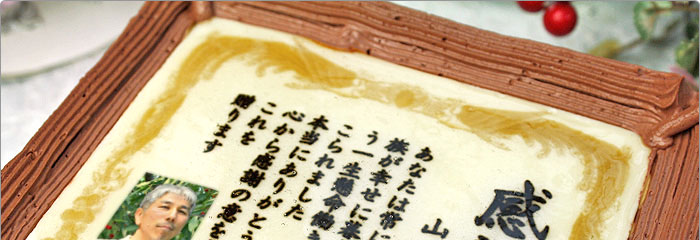 感
山
あなたは常に
族が幸せに暮
う一生懸命働き
こられました
本当にありがとう
心から感謝の意を
これを
贈ります